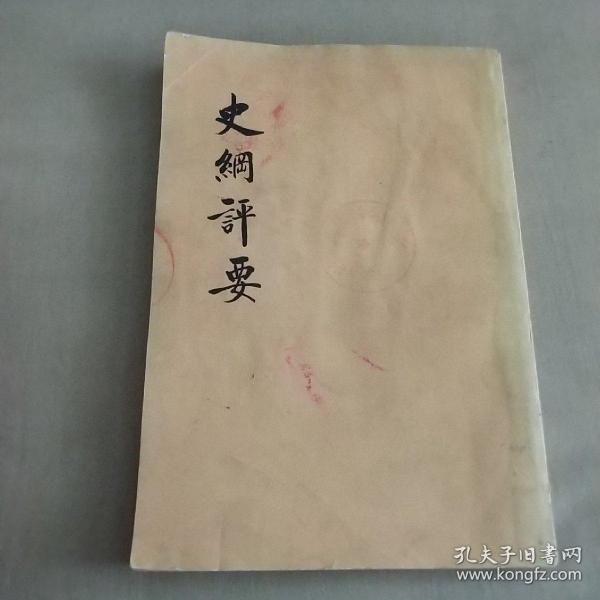 史綱評要
孔夫子旧書网
www.kongfz.com